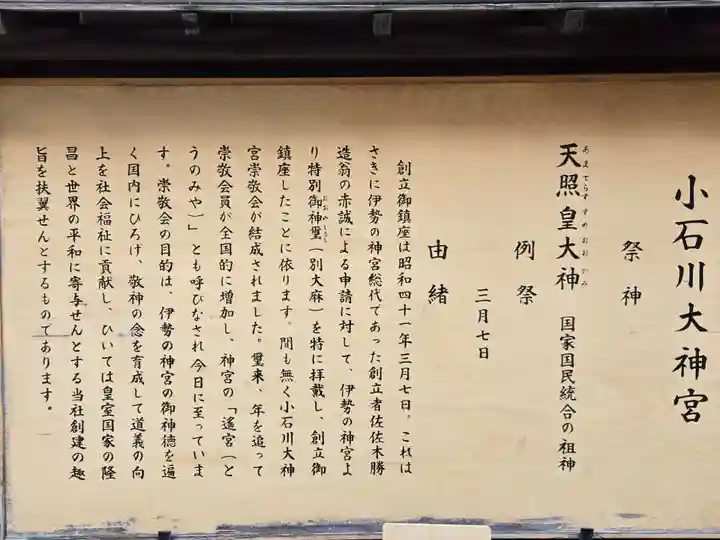 小石川大神宮
祭神
天照皇大神 国家国民統合の祖神
あまてらすすめおおかみ
例祭
三月七日
由緒
創立御鎮座は昭和四十一年三月七日。これは
さきに伊勢の神宮総代であった創立者佐佐木勝
造翁の赤誠による申請に対して、伊勢の神宮よ
り特別御神璽（別大麻）を特に拝戴し、創立御
おおみしるし
鎮座したことに依ります。間も無く小石川大神
宮崇敬会が結成されました。爾来、年を追って
崇敬会員が全国的に増加し、神宮の「遙宮（と
うのみや）」とも呼びなされ今日に至っていま
す。崇敬会の目的は、伊勢の神宮の御神徳を遍
く国内にひろげ、敬神の念を育成して道義の向
上を社会福祉に貢献し、ひいては皇室国家の隆
昌と世界の平和に寄与せんとする当社創建の趣
旨を扶翼せんとするものであります。